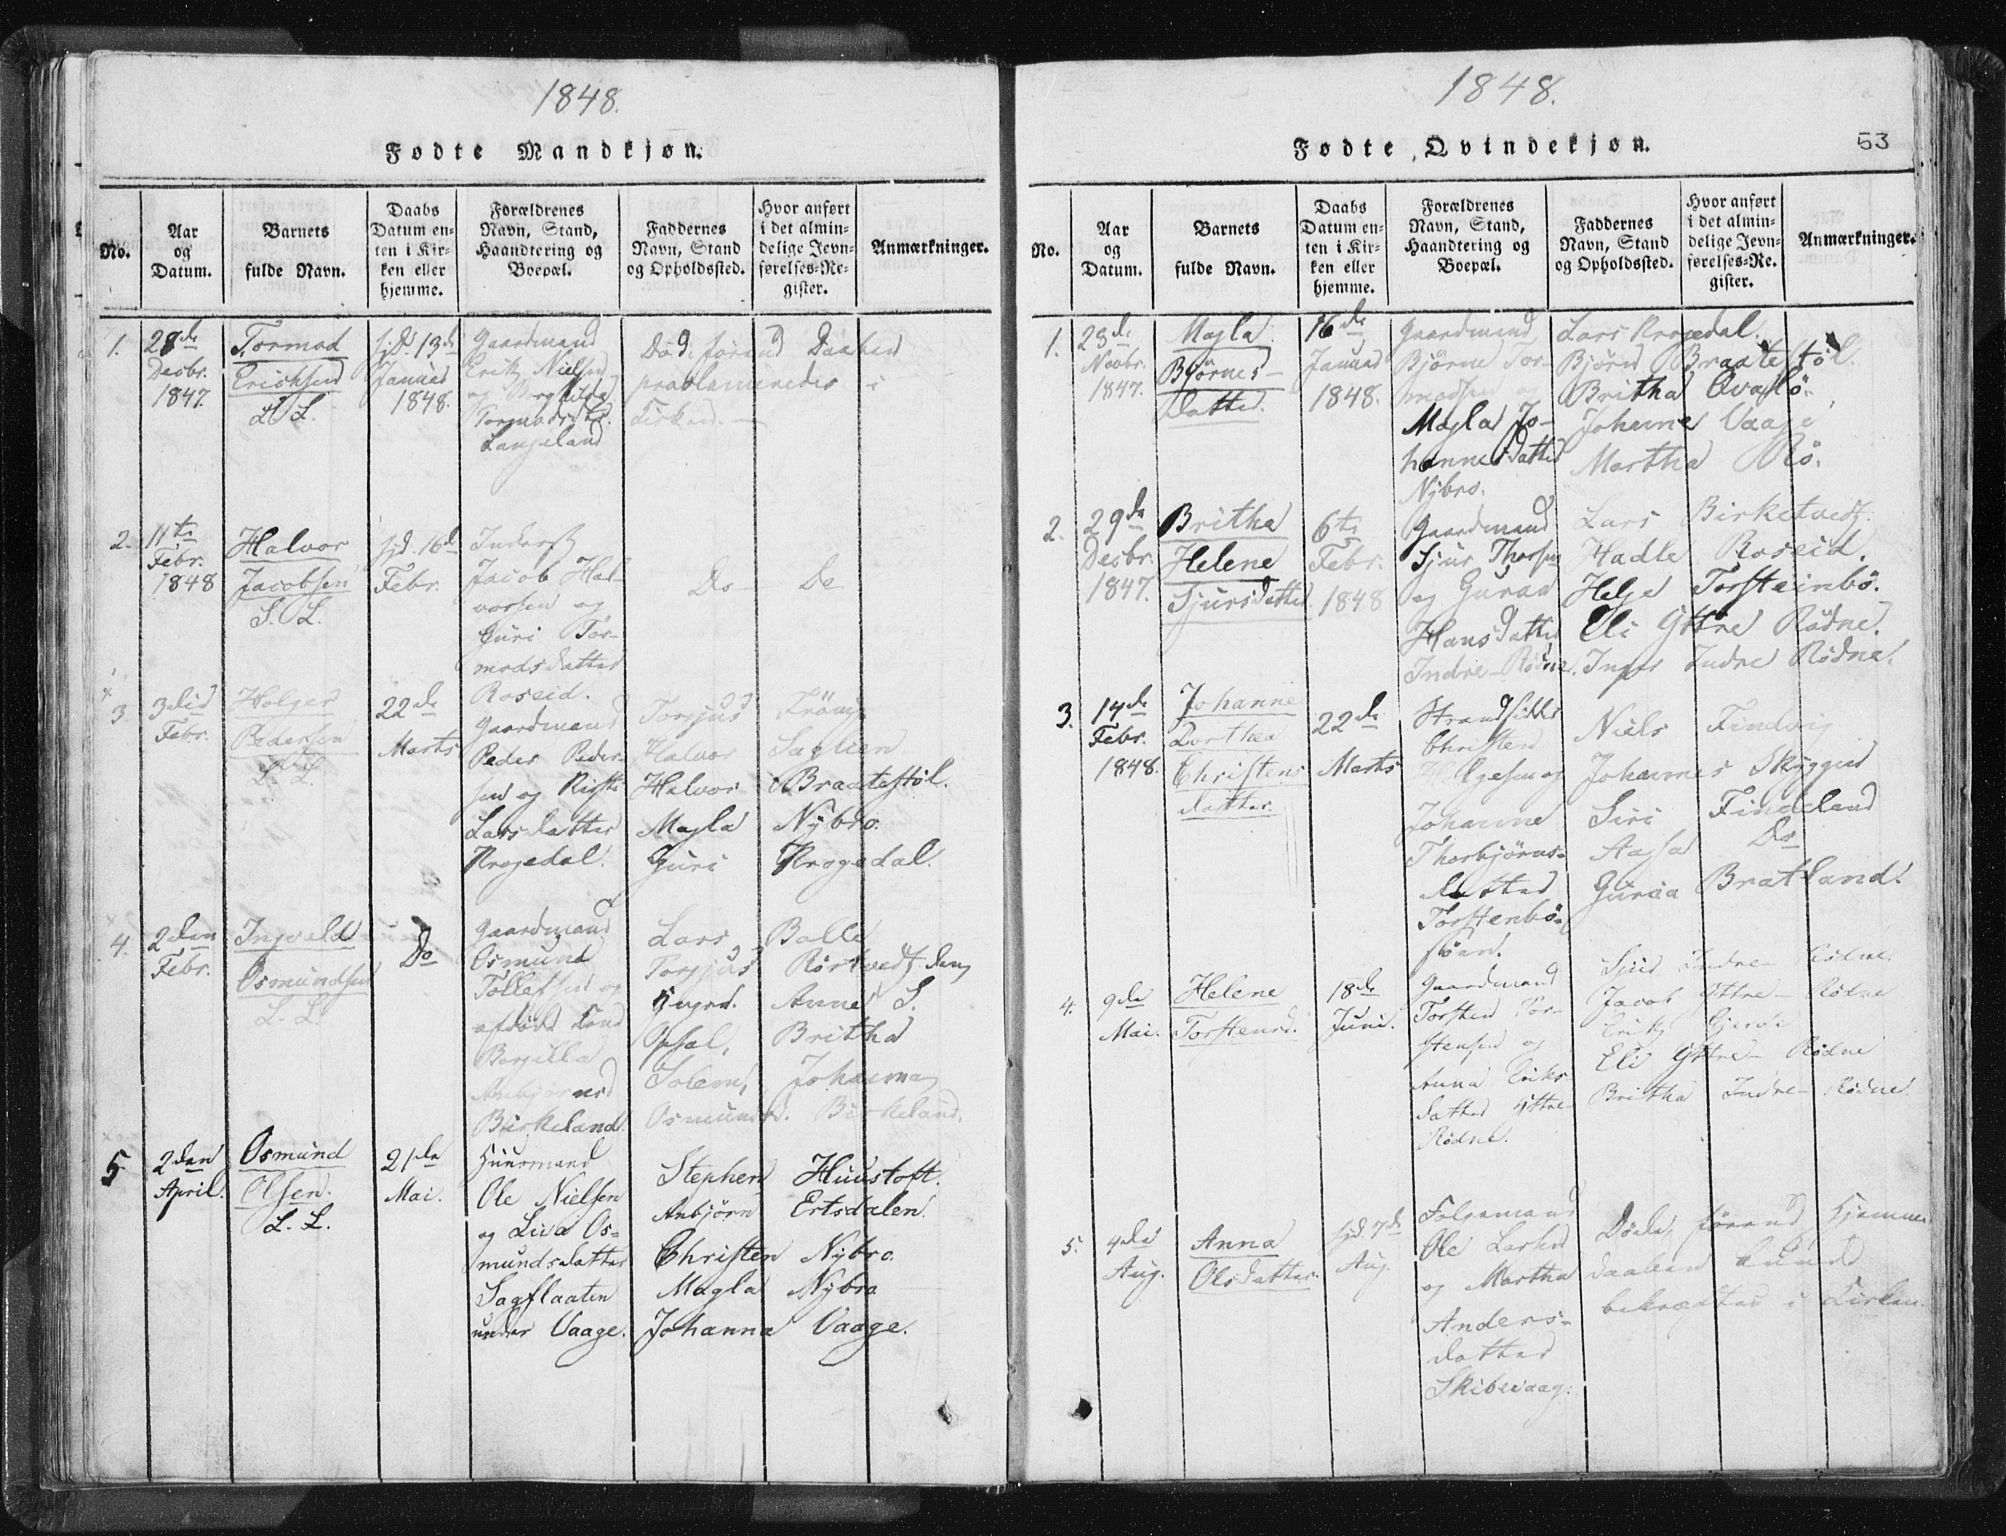 1848.
Fødte Mandkjøn.
No.
Aar
og
Datum.
Barnets
fulde Navn.
Daabs
Datum en-
ten i Kir-
ken eller
hjemme.
Forældrenes
Navn, Stand,
Haandtering og
Boepæl.
Faddernes
Navn, Stand
og Opholdssted.
Hvor anført
i det almin-
delige Jevn-
førelses-Re-
gister.
Anmærkninger.
1.
28de
Decbr.
1847.
Tormod
Erichsen
L. L.
hjd. 13de
Januar
1848.
Gaardmand
Erik Nielsen
og
Tormodsdtr.
Langeland
Død, førend Daaben
proclameredes i
Kirken.
2.
11te
Febr.
1848
Halvor
Jacobsen
S. L.
hjd. 16de
Febr.
Inderst
Jacob Hal-
vorsen og
Guri Tor-
modsdatter
Roseid.
Do De
3.
3die
Febr.
Holger
Pedersen
L. L.
22de
Marts
Gaardmand
Peder Peder-
sen og
Larsdatter
Krogedal.
Torgjus
Halvor Saglien
Halvor Braatestøl.
Magla Nybro.
Guri Krogedal.
4.
2den
Febr.
Ingvald
Osmundsen
L. L.
Do
Gaardmand
Osmund
Tollefsen og
afdøde Kone
Birkeland.
Lars Balle
Torgjus Rørtvedt den
yngre. Anne S.
Opsal, Britha
Solem, Johanna
Osmundsd. Birkeland.
5
2den
April.
Osmund
Olsen.
L. L.
21de
Mai.
Huusmand
Ole Nielsen
og Liva Os-
mundsdatter
Sagflaaten
under Vaage.
Stephen Huustoft.
Anbjörn Ertsdalen.
Christen Nybro.
Magla Nybro
Johanna Vaage.
1848.
Fødte Qvindekjøn.
53
No.
Aar
og
Datum.
Barnets
fulde Navn.
Daabs
Datum en-
ten i Kir-
ken eller
hjemme.
Forældrenes
Navn, Stand,
Haandtering og
Boepæl.
Faddernes
Navn, Stand
og Opholdssted.
Hvor anført
i det almin-
delige Jevn-
førelses-Re-
gister.
Anmærkninger.
1.
28de
Novbr.
1847.
Magla
Bjørnes-
datter.
16de
Januar
1848.
Gaardmand
Bjørne Tor-
modsen og
Magla Jo-
hannesdatter
Nybro.
Lars Krogedal.
Bjørn Braatestøl.
Britha Qvaslö.
Johanne Vaage
Martha Rö.
2.
29de
Decbr.
1847.
Britha
Helene
Sjursdatter
6te
Febr.
1848
Gaardmand
Sjur Thorsen
og Guraa
Hansdatter
Indre-Rødne.
Lars Birketvedt.
Hadle Roseid.
Helge Torsteinbö.
Eli Yttre Rødne.
Inger Indre Rødne.
3.
14de
Febr.
1848.
Johanne
Dorthea
Christens
datter.
22de
Marts
Strandsidder
Christen
Johanne
Thorbjørns-
datter
Torstenbö-
Niels Findvig
Johannes
Siri Findeland
Aasa Do
Guraa Bratland.
4.
9de
Mai.
Helene
Torstensd.
18de
Juni.
Gaardmand
Torsten Tor-
stensen og
Anna Eriks
datter Yttre-
Rødne.
Sjur Indre- Rødne.
Jacob Yttre- Rødne
Erik
Eli Yttre- Rødne
Britha Indre- Rødne
5.
4de
Aug.
Anna
Olsdatter.
hjd. 7de
Aug.
Ole Larsen
og Martha
Anders-
datter
Skibevaag.
Døde, førend Hjemme
daaben kunde
bekræftes i Kirken.